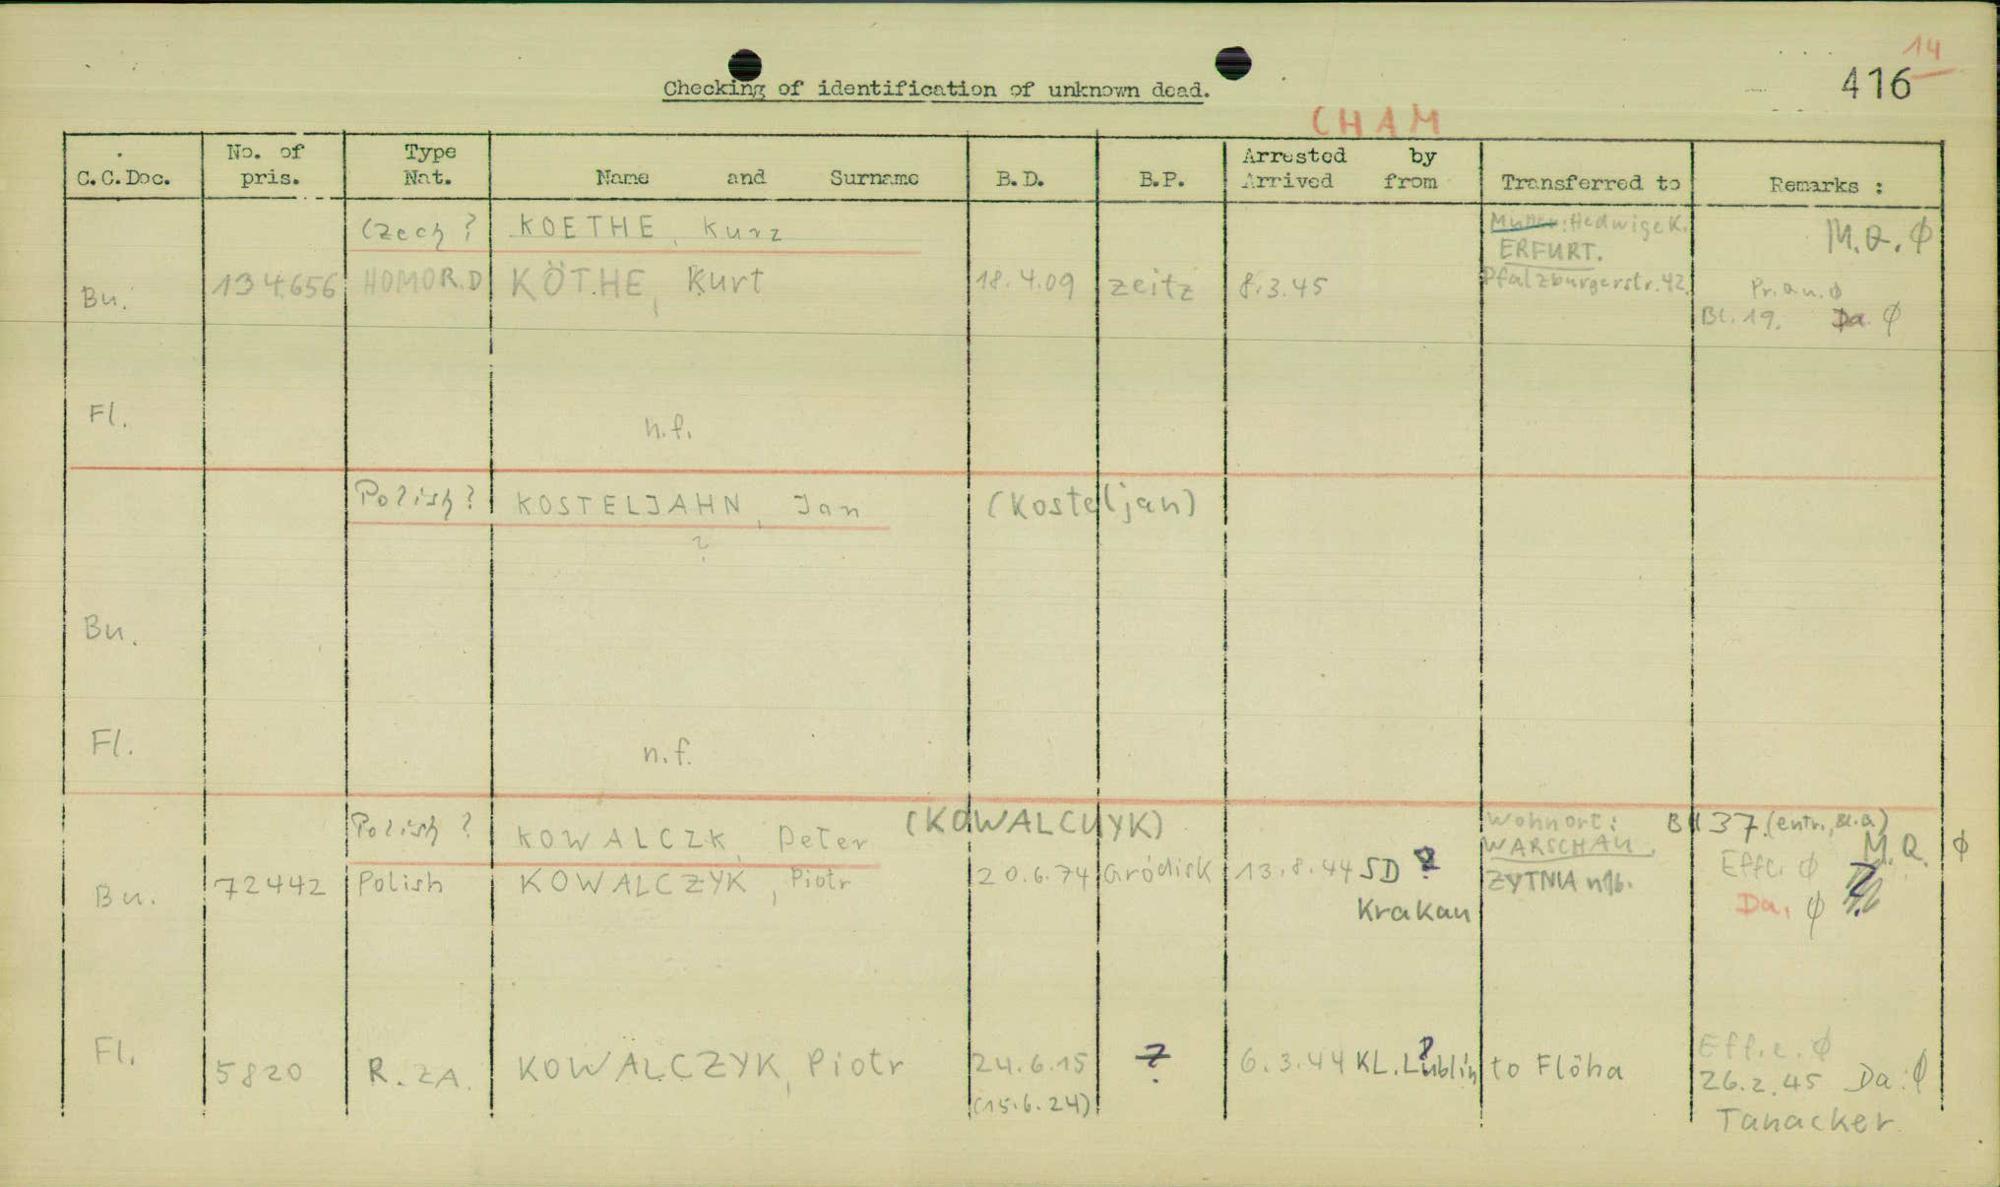 14
416
Checking of identification of unknown dead.
CHAM
C.C.Doc. No. of pris. Type Nat. Name and Surname B.D. B.P. Arrested by Arrived from Transferred to Remarks :
Czech ? KOETHE, Kurz Mutter: Hedwige K. M.Q. Ø
ERFURT.
Bu. 134.656 HOMOR.D KÖTHE, Kurt 18.4.09 Zeitz 8.3.45 Pfalzburgerstr. 42. Pr.au. Ø
Bl. 19. Da Ø
Fl. n.f.
Polish? KOSTELJAHN, Jan (Kosteljan)
?
Bu.
Fl. n.f.
Polish ? KOWALCZK, Peter (KOWALCUYK) Wohnort: 37. (entr., Bl.a)
WARSCHAU. M.Q. Ø
Bu. 72442 Polish KOWALCZYK, Piotr 20.6.74 Gródisk 13.8.44 SD ? ZYTNIA Effc. Ø
Krakau Da, Ø
Fl. 5820 R.ZA. KOWALCZYK, Piotr 24.6.15 ? 6.3.44 KL. Lublin ? to Flöha Eff.c. Ø
26.2.45 Da: Ø
(15.6.24) Tanacker